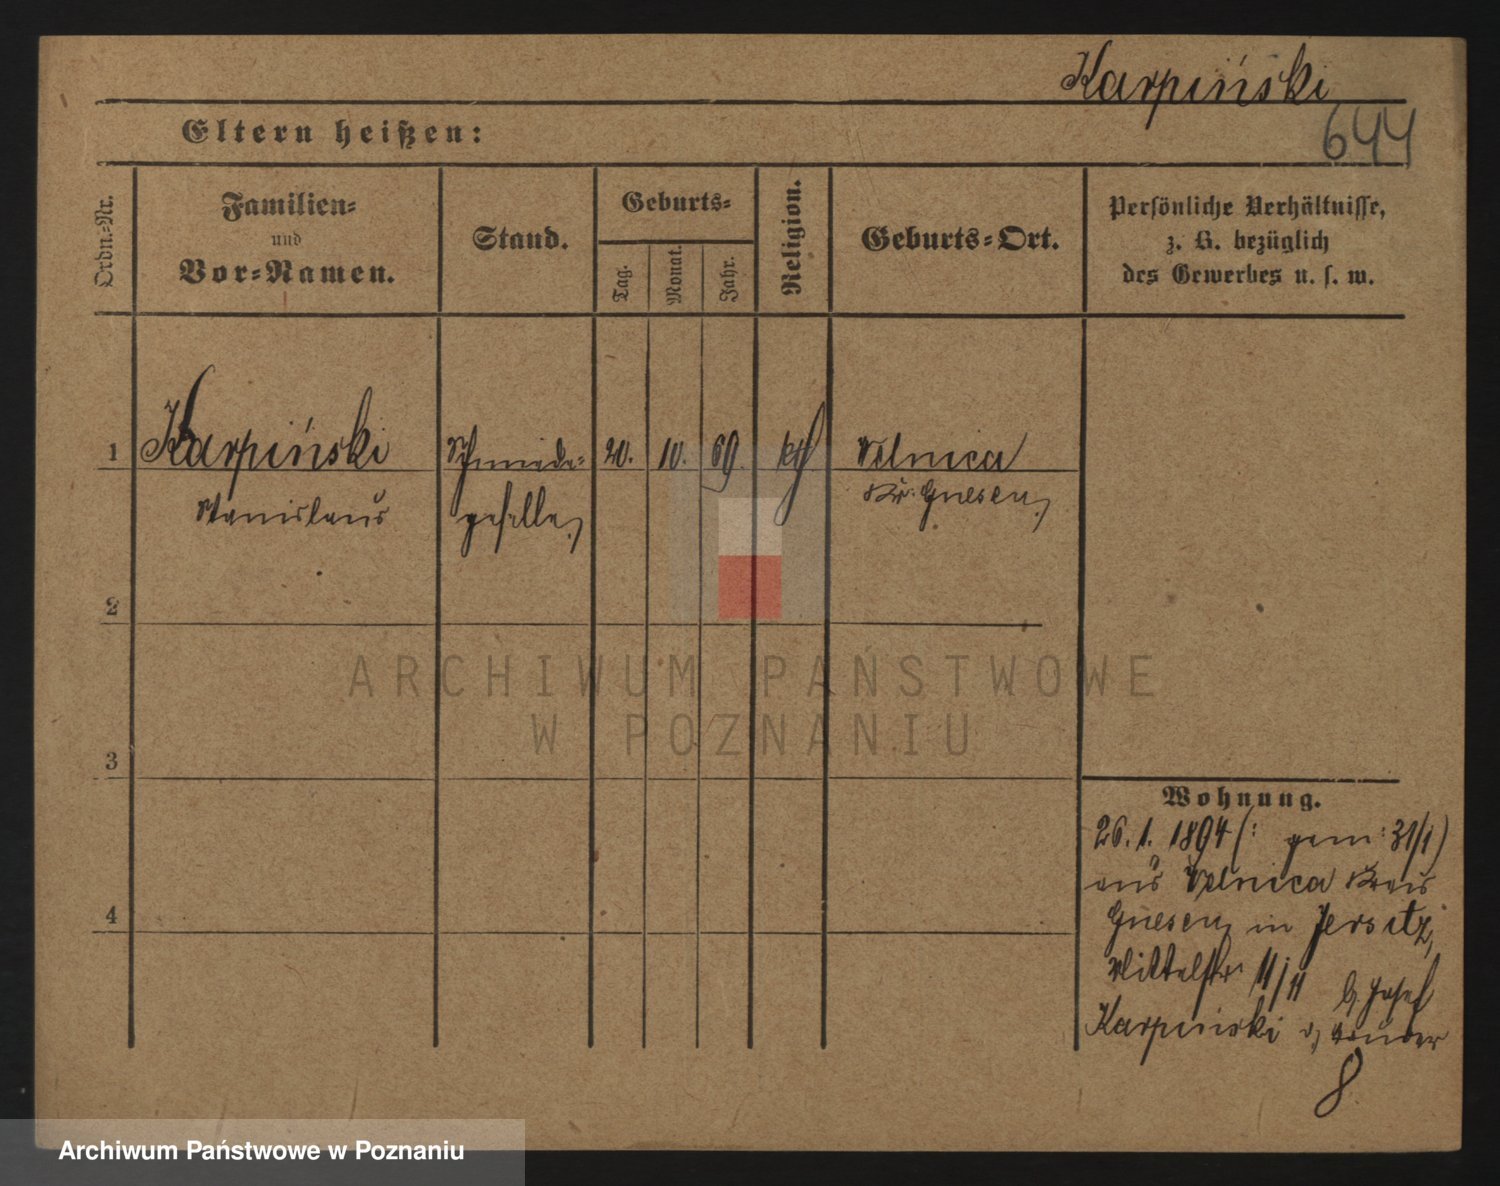 Karpiński
644
Eltern heißen:
Ordn.-Nr.
Familien-
und
Vor-Namen.
Stand.
Geburts-
Tag.
Monat.
Jahr.
Religion.
Geburts-Ort.
Persönliche Verhältnisse,
z. B. bezüglich
des Gewerbes u. s. w.
1
Karpiński
Stanislaus
Schmiede-
geselle
20.
10.
69.
kth
Welnica
Kr. Gnesen
2
3
4
ARCHIWUM PAŃSTWOWE
W POZNANIU
Wohnung.
26. 1. 1894 (: gem: 31/1)
aus Welnica Kreis
Gnesen in Jersitz,
Mittelstr 11/11 b/ Josef
Karpinski
8
Archiwum Państwowe w Poznaniu